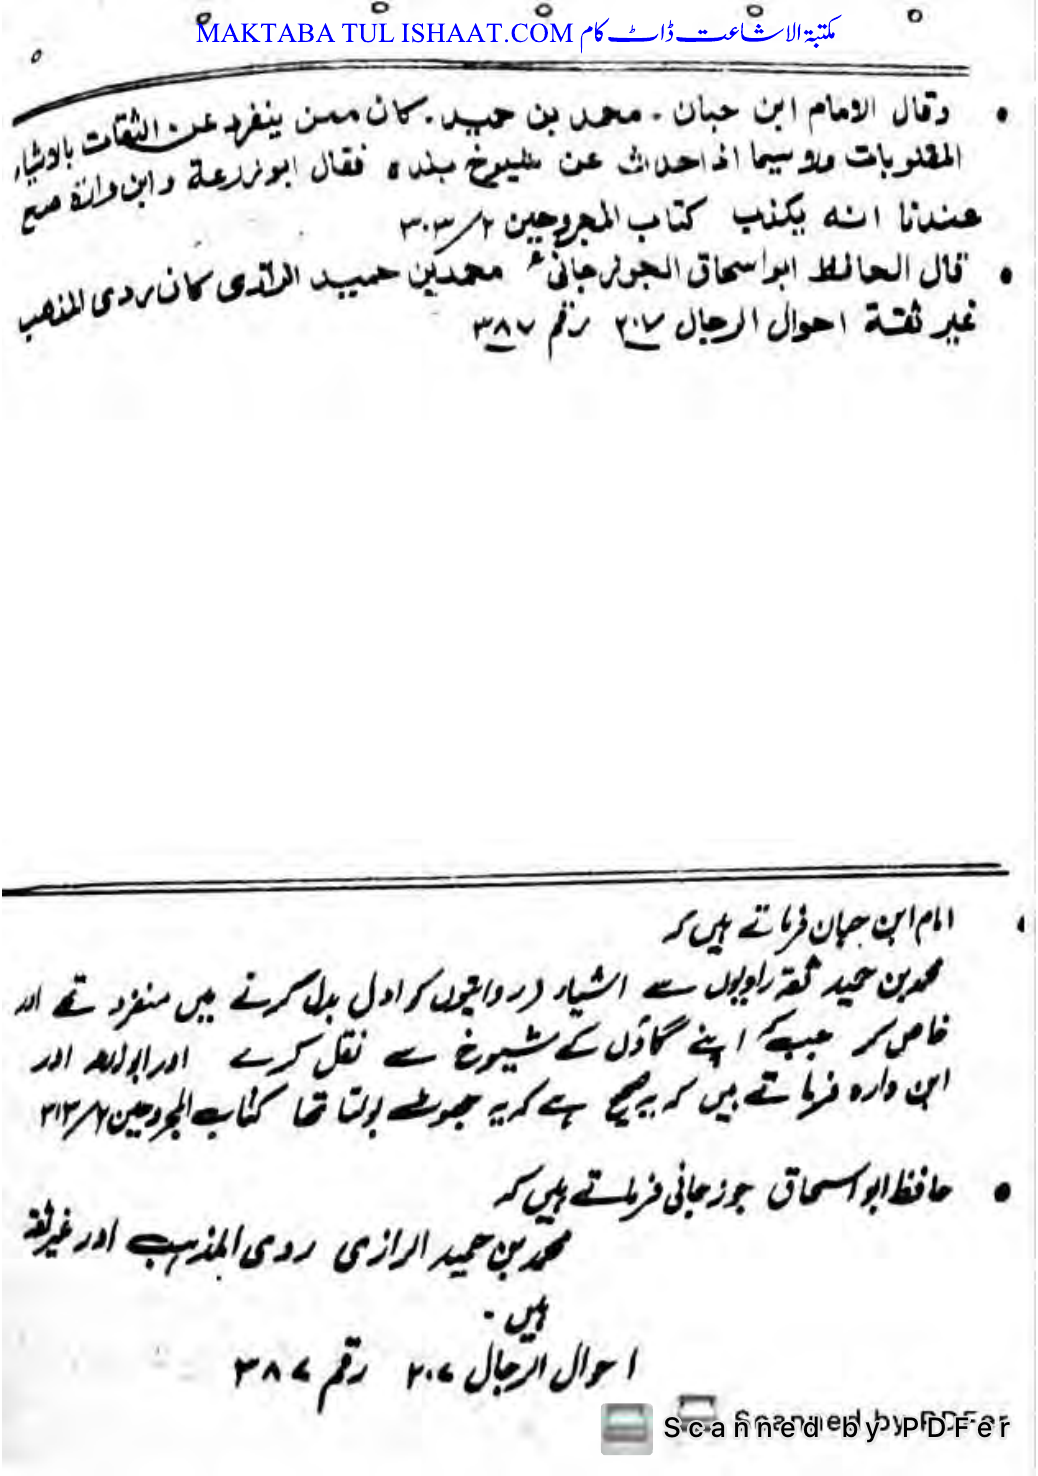 MAKTABA TUL ISHAAT.COM مکتبۃ الاشاعت ڈاٹ کام
وقال الامام ابن حبان - محمد بن حميد - كان ممن ينفرد عن الثقات بالاشياء
المقلوبات ولا سيما اذا حدث عن شيوخ بلده فقال ابو زرعة وابن وارة صح
عندنا انه يكذب كتاب المجروحين ٢/٣٠٣
قال الحافظ ابو اسحاق الجوزجانی محمد بن حميد الرازی كان ردی المذهب
غير ثقة احوال الرجال ٢٠٧ رقم ٣٨٧
امام ابن حبان فرماتے ہیں کہ
محمد بن حمید ثقہ راویوں سے اشیاء (روایتوں کو ادل بدل کرنے میں منفرد تھے اور
خاص کر جب کہ اپنے گاؤں کے شیوخ سے نقل کرے اور ابوزرعہ اور
ابن وارہ فرماتے ہیں کہ یہ صحیح ہے کہ یہ جھوٹ بولتا تھا کتاب المجروحین ۲/۳۱۳
حافظ ابو اسحاق جوزجانی فرماتے ہیں کہ
محمد بن حمید الرازی ردی المذہب اور غیر ثقہ
ہیں -
احوال الرجال ۲۰۷ رقم ۳۸۷
Scanned by PDFer